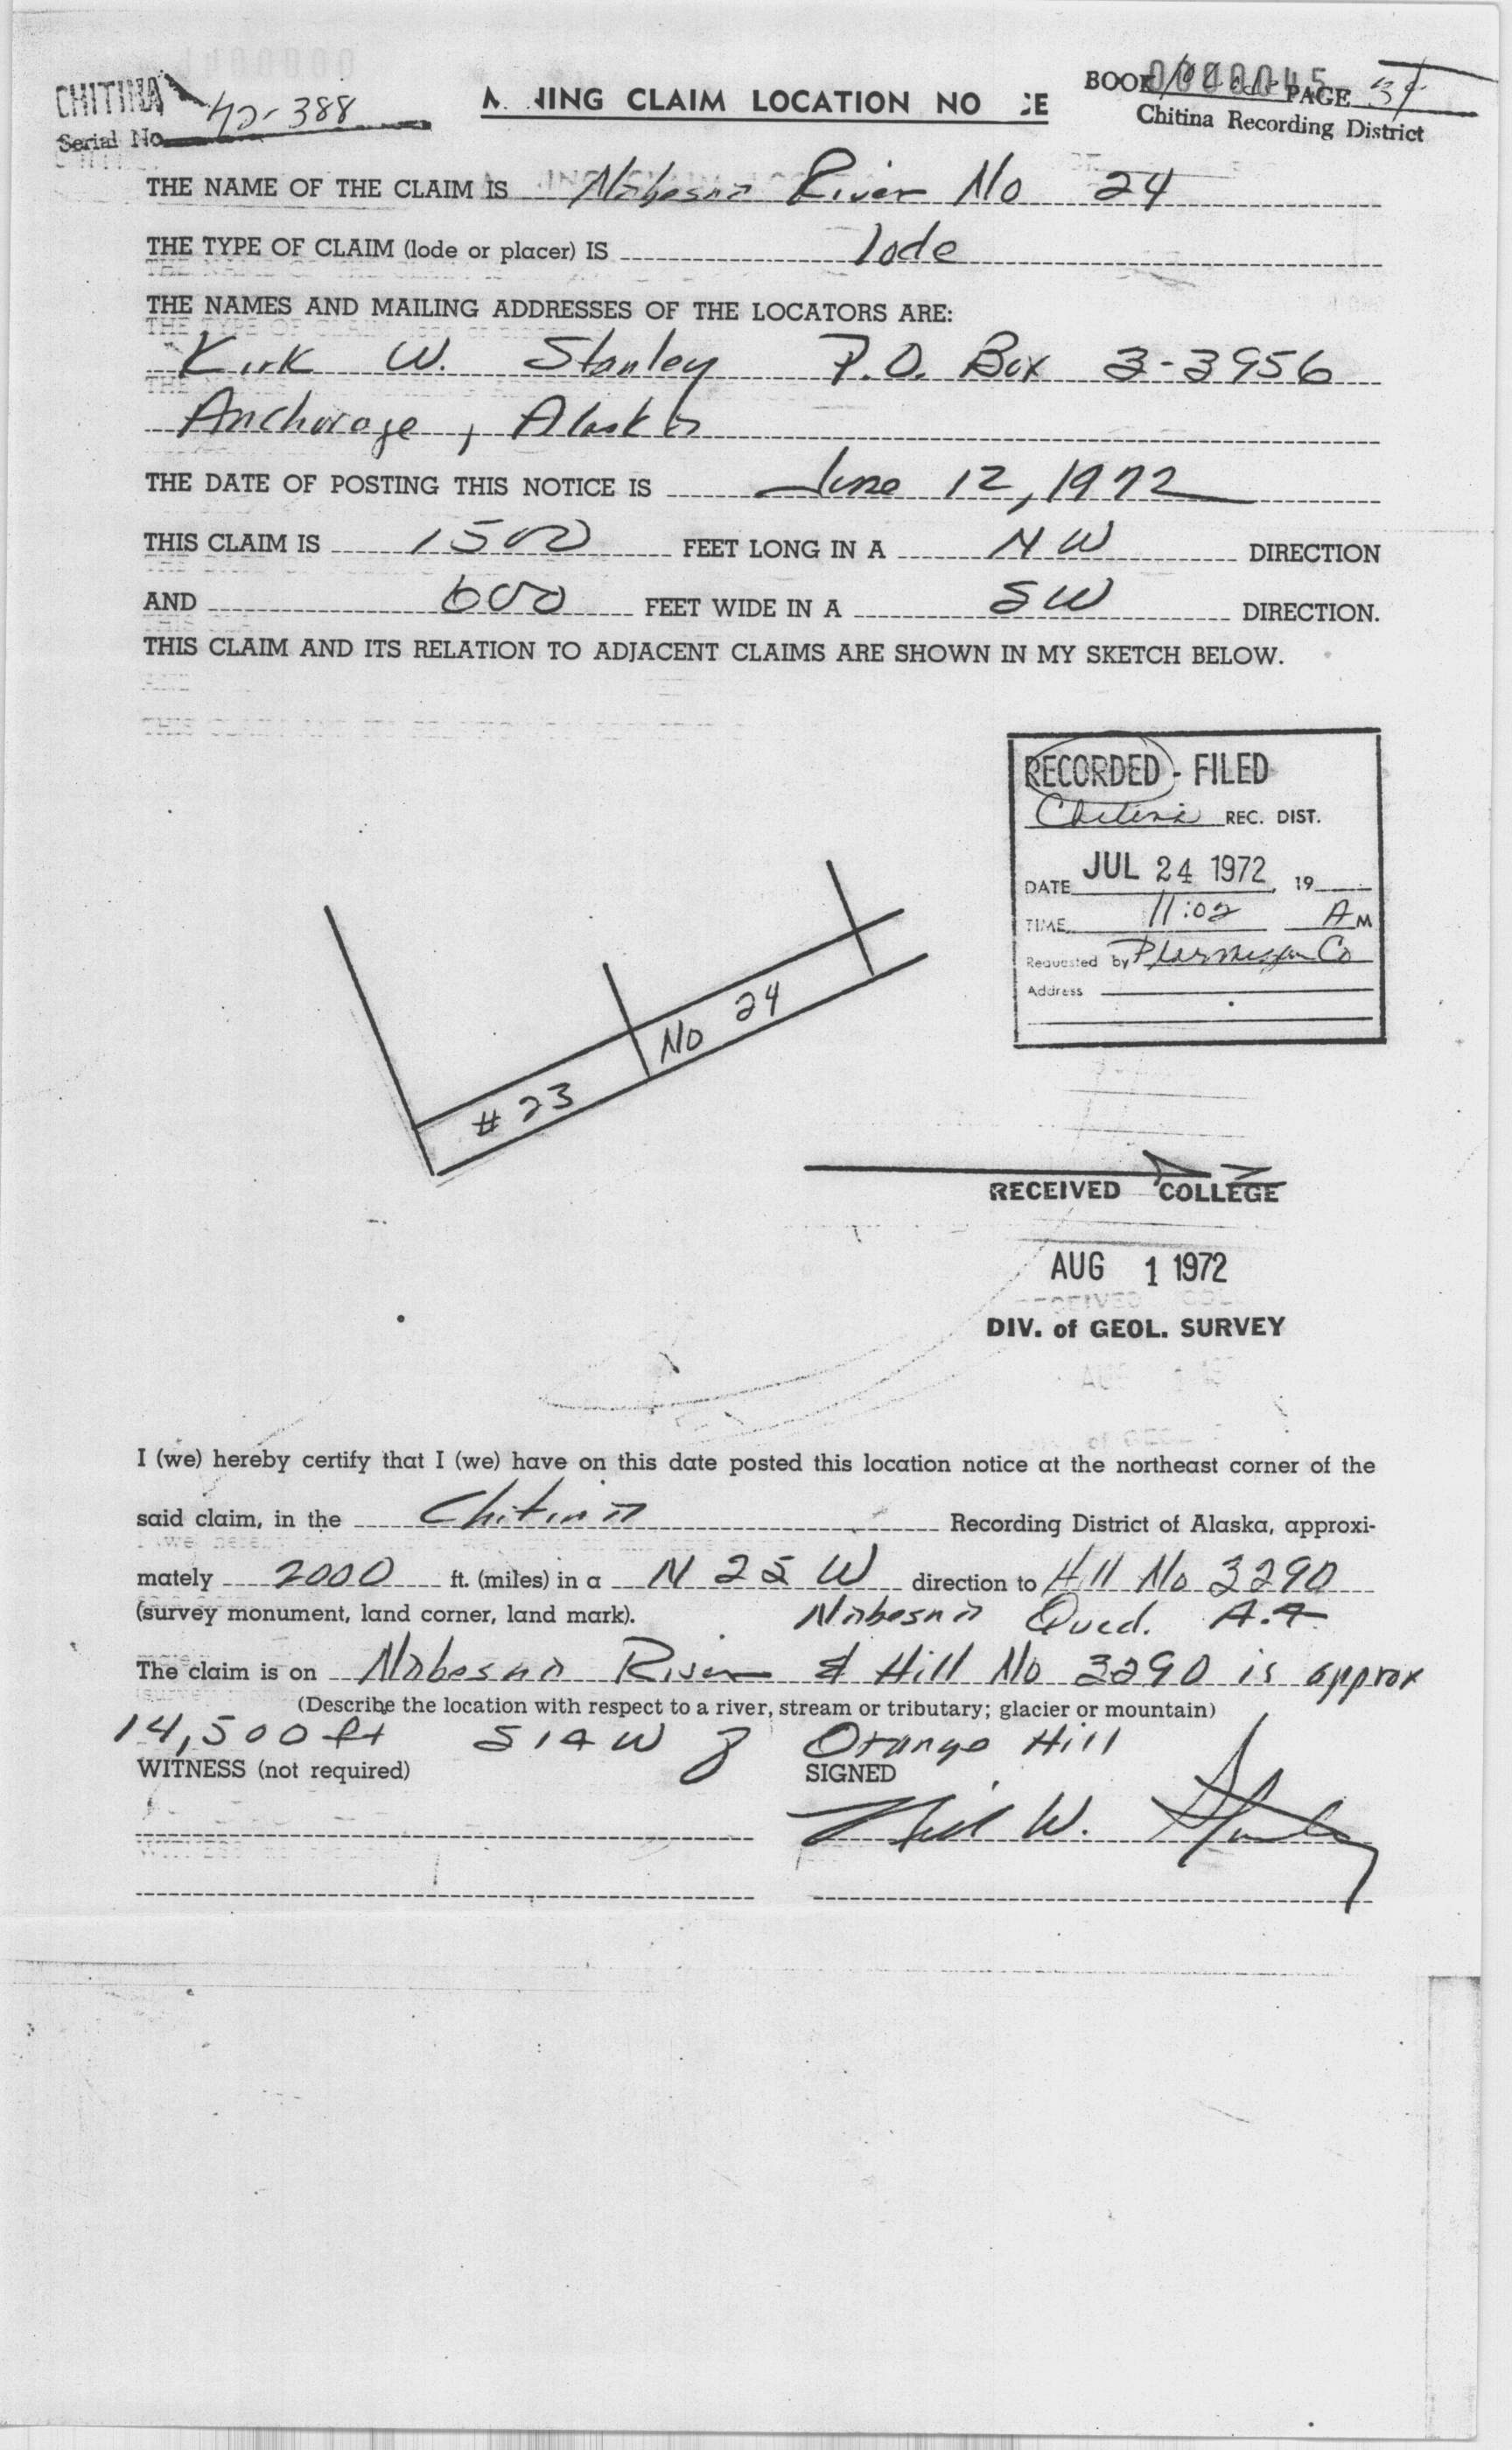 CHITINA
Serial No. 72-388
MINING CLAIM LOCATION NOTICE
BOOK PAGE 34
0000045
Chitina Recording District
THE NAME OF THE CLAIM IS Nabesna River No 24
THE TYPE OF CLAIM (lode or placer) IS lode
THE NAMES AND MAILING ADDRESSES OF THE LOCATORS ARE:
Kirk W. Stanley P.O. Box 3-3956
Anchorage, Alaska
THE DATE OF POSTING THIS NOTICE IS June 12, 1972
THIS CLAIM IS 1500 FEET LONG IN A NW DIRECTION
AND 600 FEET WIDE IN A SW DIRECTION.
THIS CLAIM AND ITS RELATION TO ADJACENT CLAIMS ARE SHOWN IN MY SKETCH BELOW.
RECORDED - FILED
Chitina REC. DIST.
DATE JUL 24 1972, 19
TIME 11:02 AM
Requested by Ptarmigan Co
Address
No 24
# 23
RECEIVED COLLEGE
AUG 1 1972
DIV. of GEOL. SURVEY
I (we) hereby certify that I (we) have on this date posted this location notice at the northeast corner of the
said claim, in the Chitina Recording District of Alaska, approxi-
mately 2000 ft. (miles) in a N 25 W direction to Hill No 3290
(survey monument, land corner, land mark). Nabesna Quad. A.4
The claim is on Nabesna River & Hill No 3290 is approx
(Describe the location with respect to a river, stream or tributary; glacier or mountain)
14,500 ft S14W of Orange Hill
WITNESS (not required) SIGNED
W. Stanley